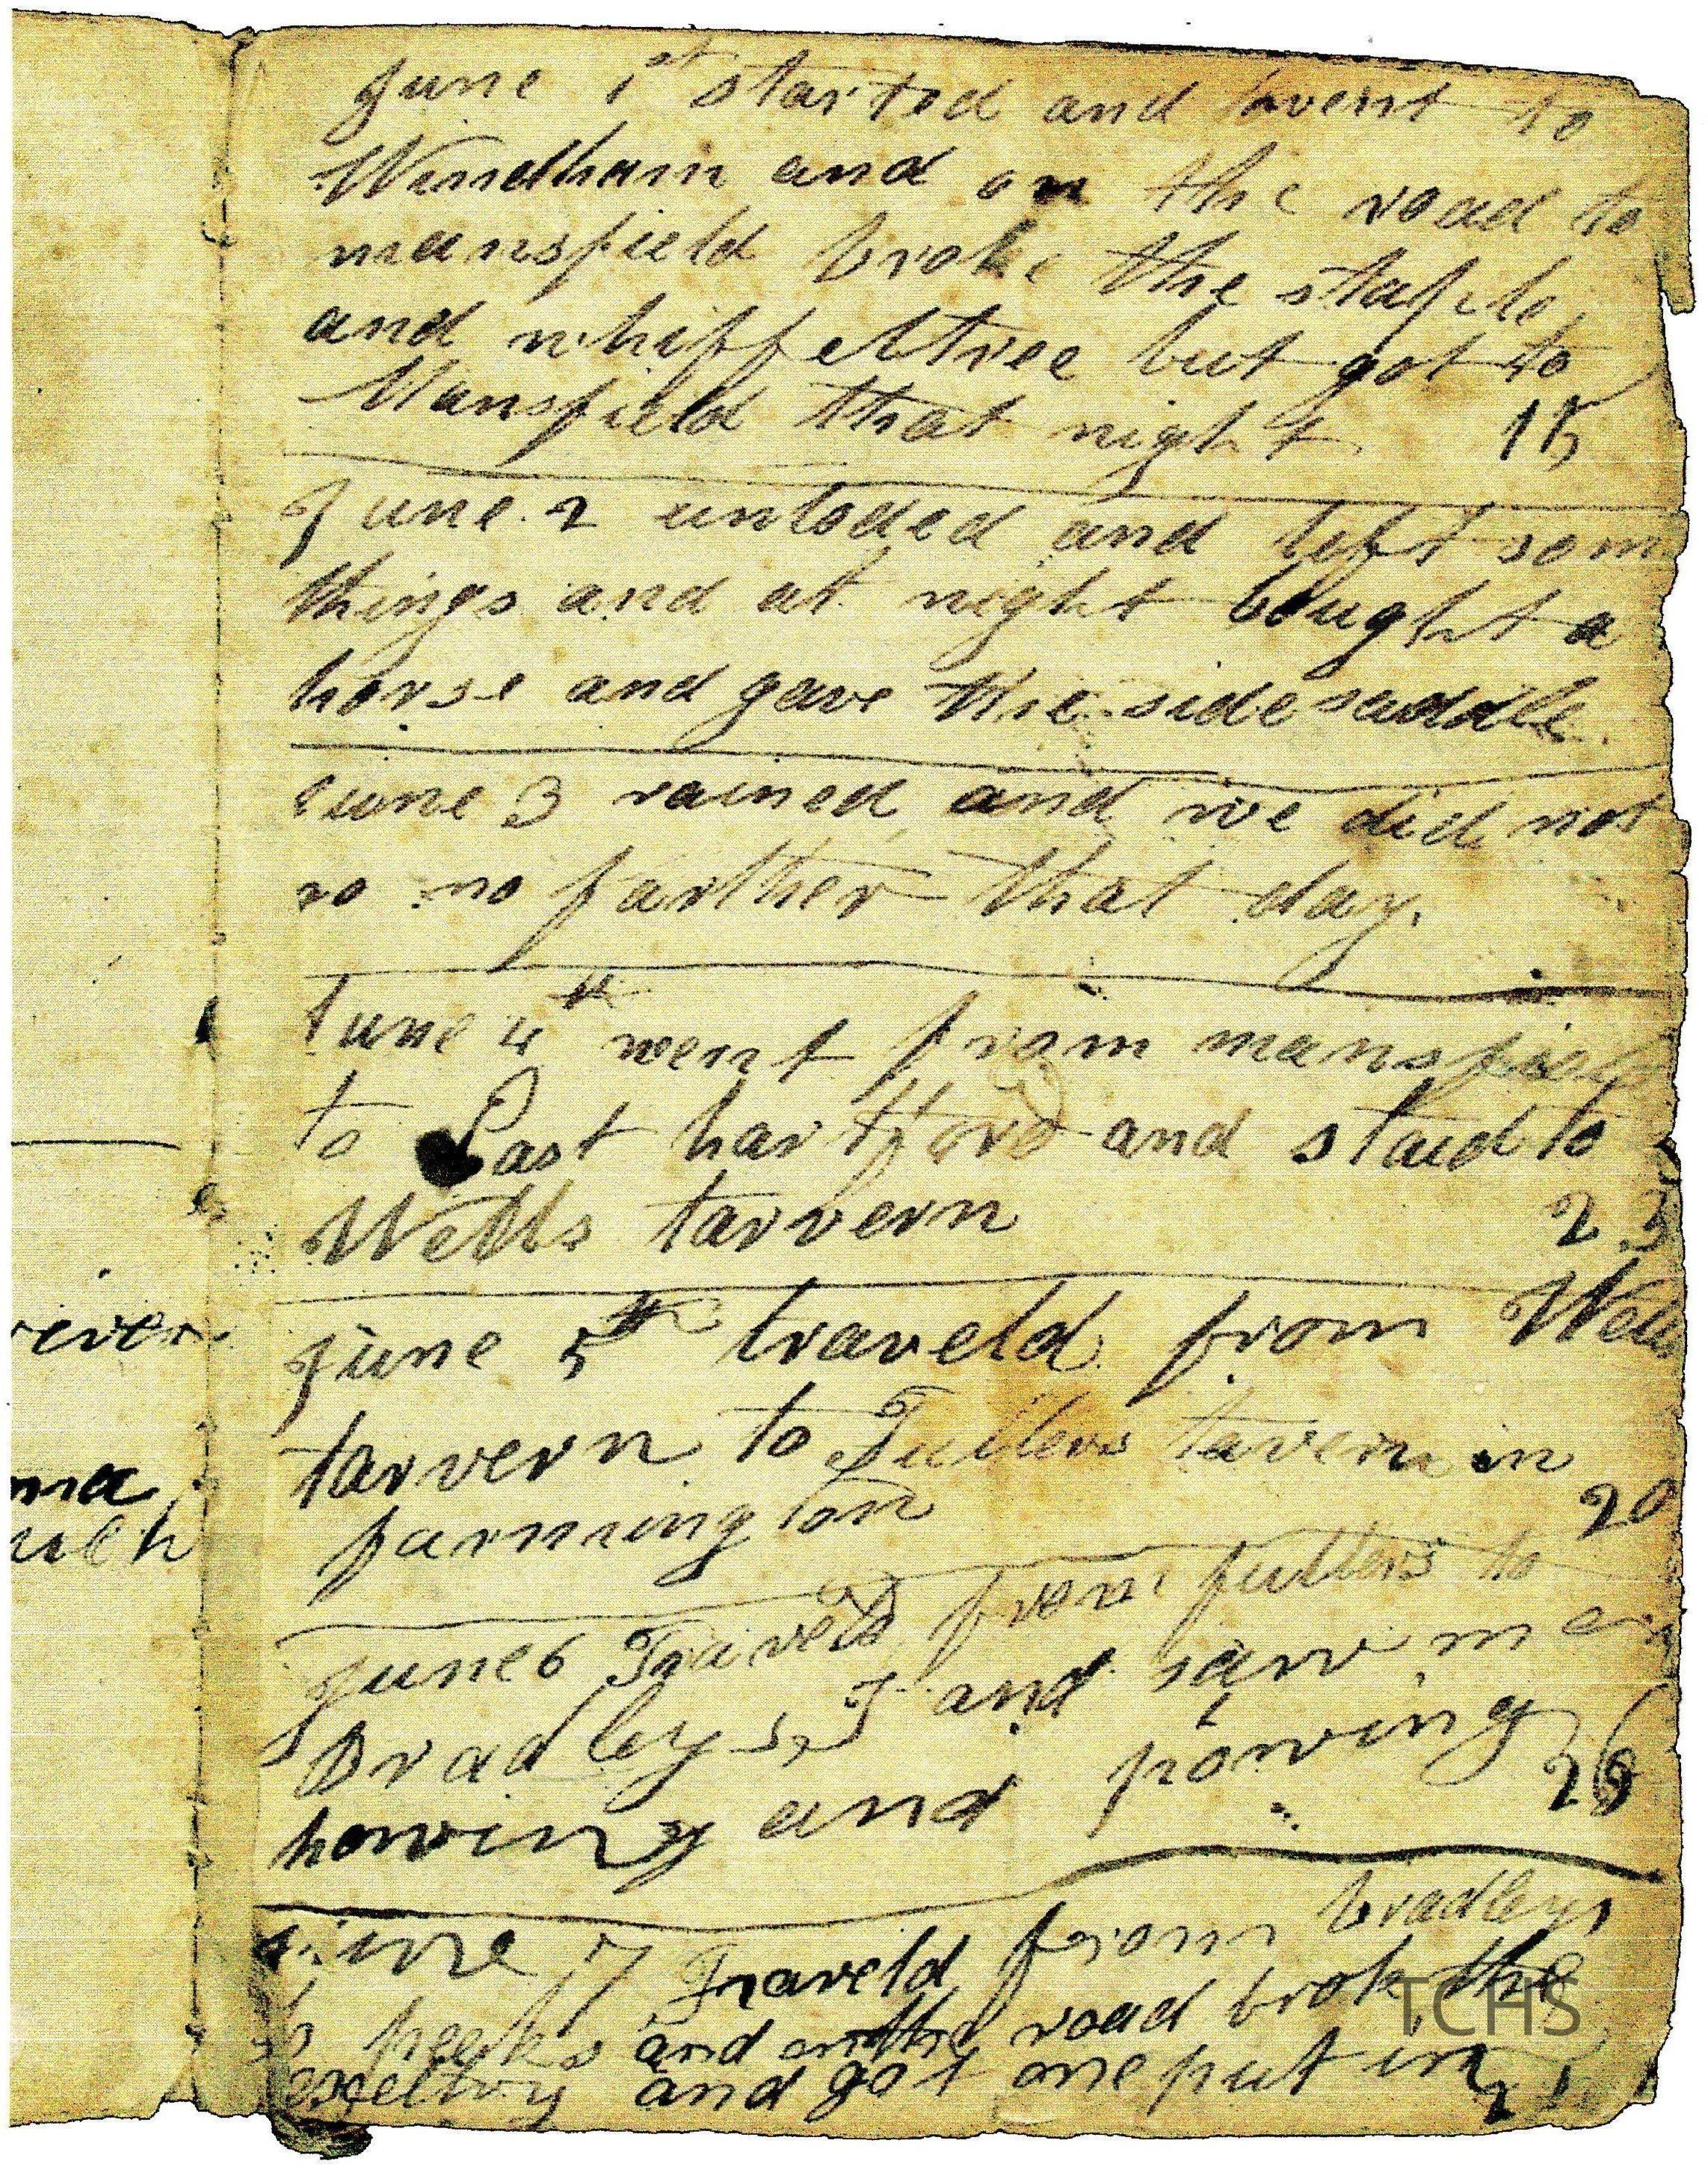 june 1st started and went to
Windham and on the road to
mansfield broke the staple
and whiffeltree but got to
Mansfield that night 15
June 2 unloded and left som
things and at night bought a
horse and gave the side saddle
june 3 rained and we did not
go no farther that day.
June 4th went from mansfield
to East hartford and staid to
Wells tarvern 23
june 5th traveld from Wells
tarvern to Fullers tavern in
farmington 20
june 6 Traveld from fullers to
Bradleys, I and saw men
howing and 26
june 7 Traveld from bradleys
and on the road brok the
exeltry and got one put in 21
rever
ma
TCHS